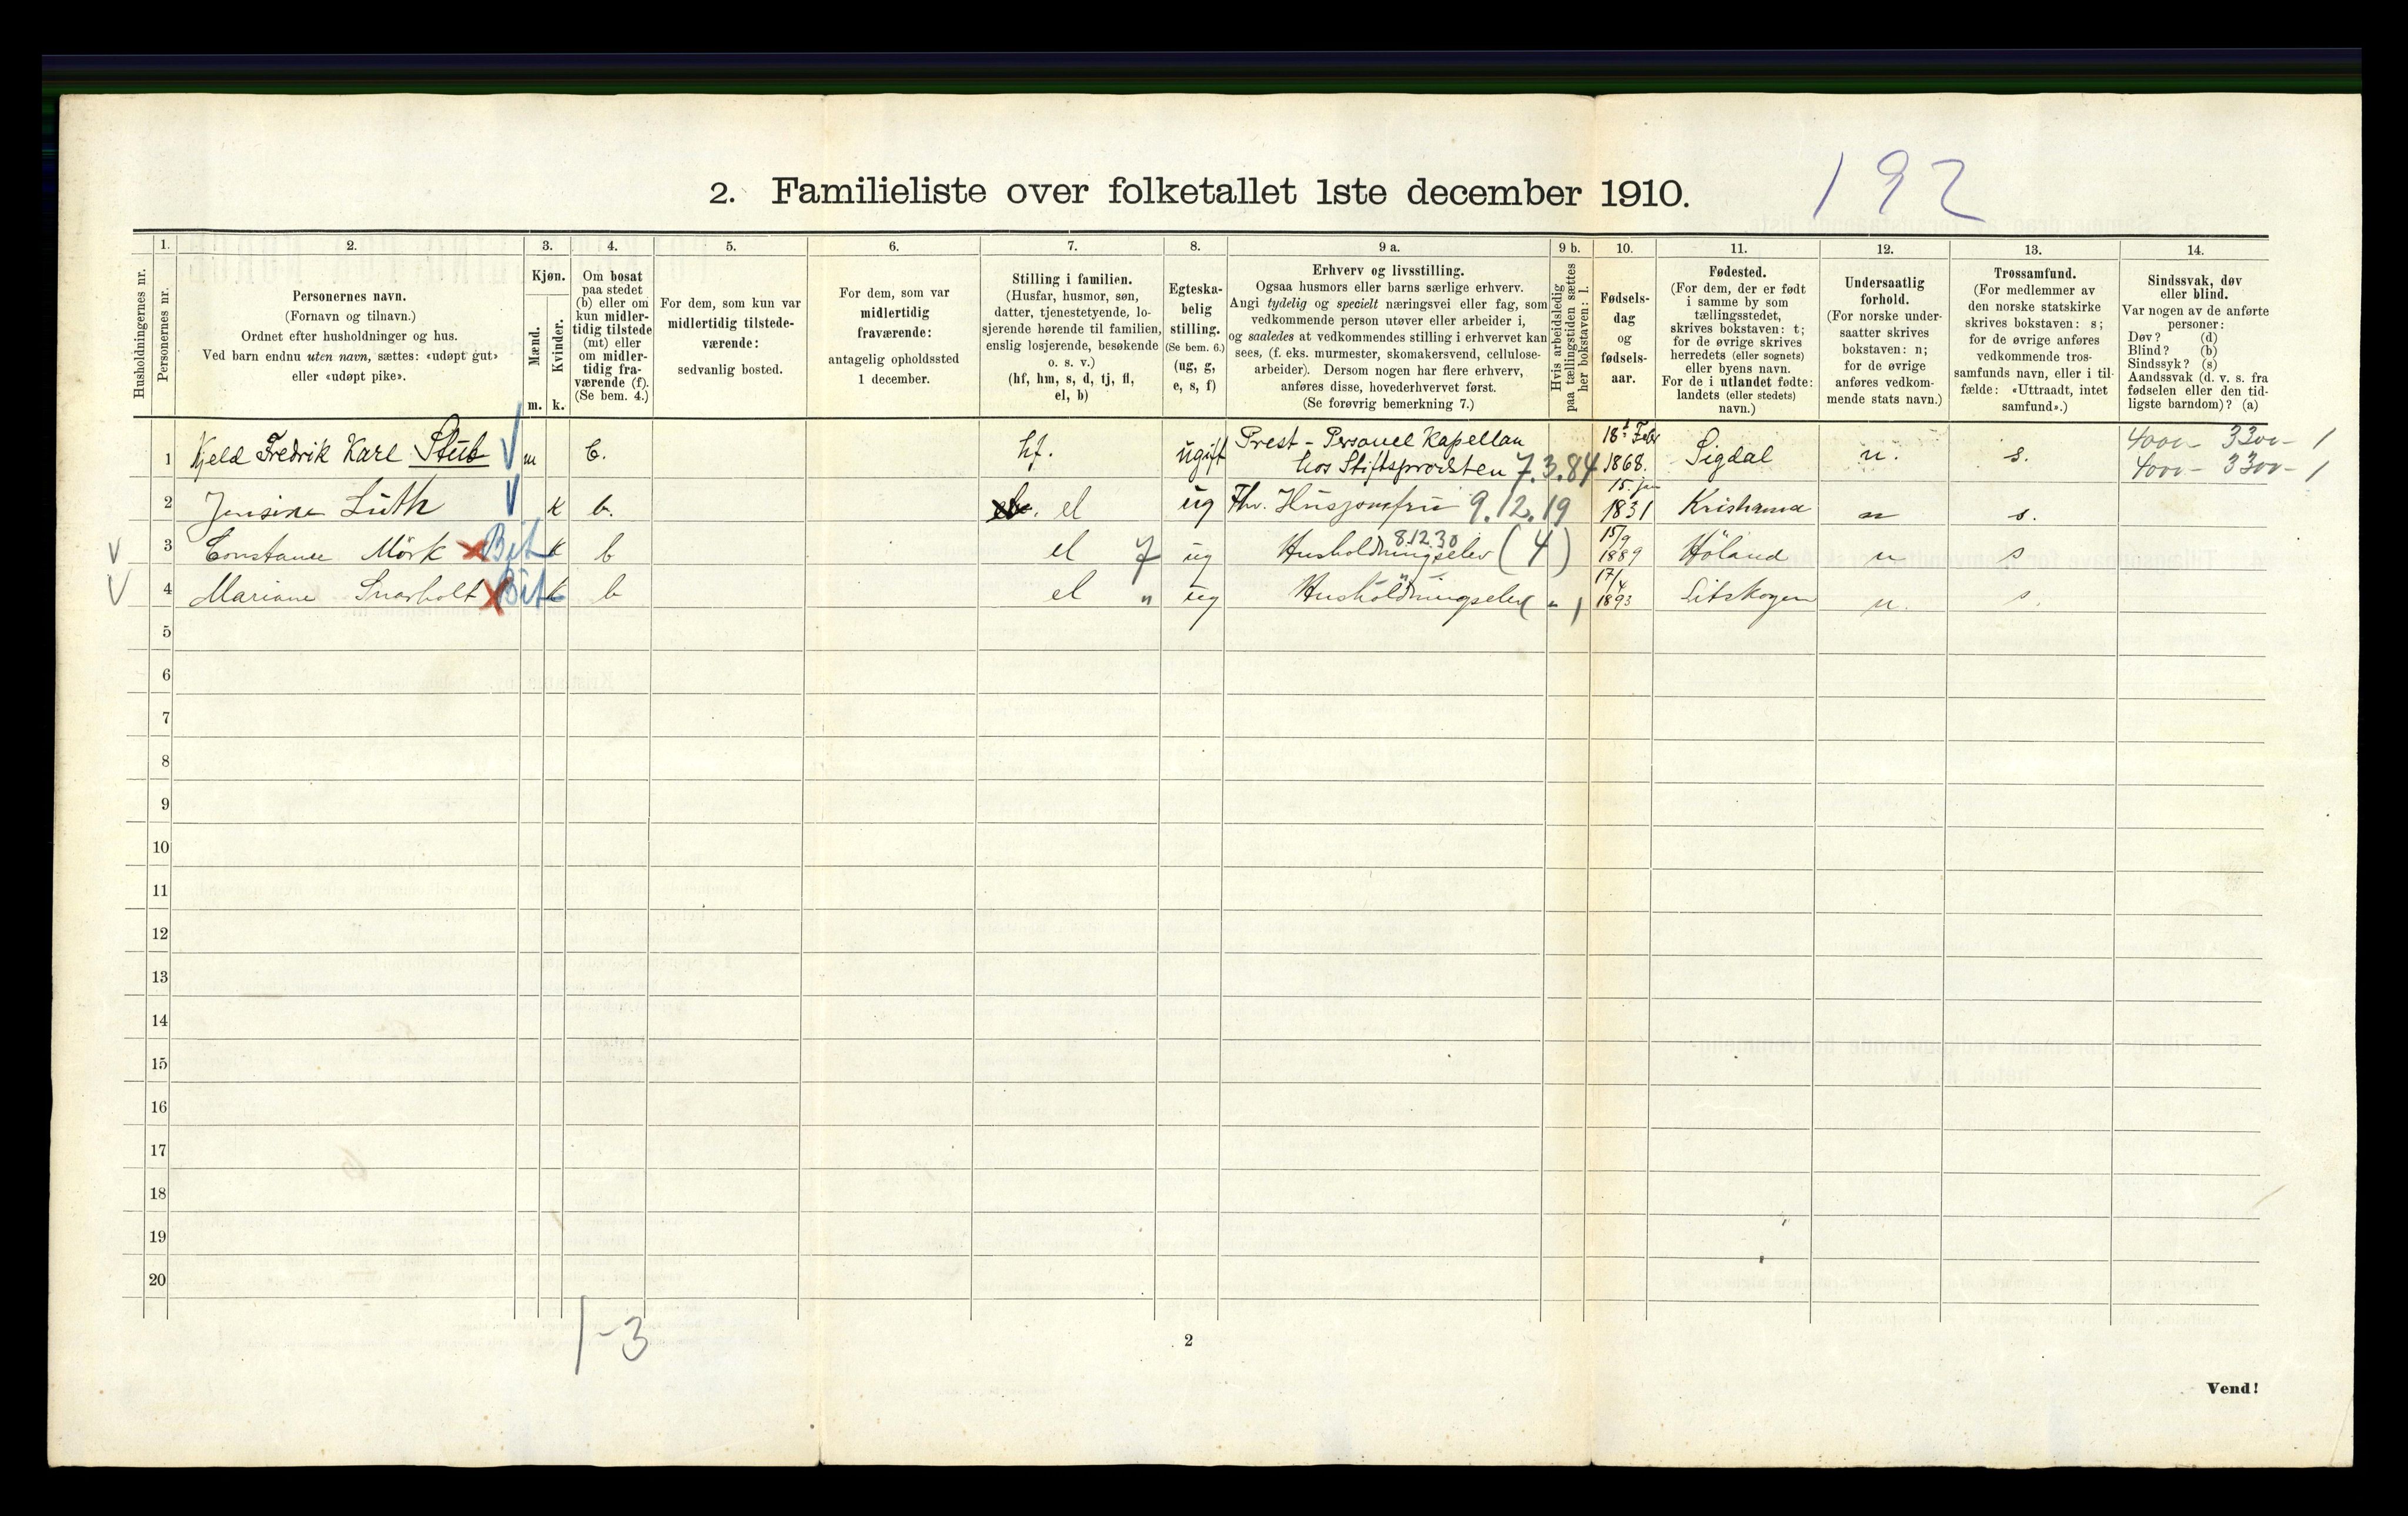 2. Familieliste over folketallet 1ste december 1910.
192
Husholdningernes nr.
1.
Personernes nr.
2.
Personernes navn.
(Fornavn og tilnavn.)
Ordnet efter husholdninger og hus.
Ved barn endnu uten navn, sættes: «udøpt gut»
eller «udøpt pike».
3.
Kjøn.
Mænd.
Kvinder.
m.
k.
4.
Om bosat
paa stedet
(b) eller om
kun midler-
tidig tilstede
(mt) eller
om midler-
tidig fra-
værende (f).
(Se bem. 4.)
5.
For dem, som kun var
midlertidig tilstede-
værende:
sedvanlig bosted.
6.
For dem, som var
midlertidig
fraværende:
antagelig opholdssted
1 december.
7.
Stilling i familien.
(Husfar, husmor, søn,
datter, tjenestetyende, lo-
sjerende hørende til familien,
enslig losjerende, besøkende
o. s. v.)
(hf, hm, s, d, tj, fl,
el, b)
8.
Egteska-
belig
stilling.
(Se bem. 6.)
(ug, g,
e, s, f)
9 a.
Erhverv og livsstilling.
Ogsaa husmors eller barns særlige erhverv.
Angi tydelig og specielt næringsvei eller fag, som
vedkommende person utøver eller arbeider i,
og saaledes at vedkommendes stilling i erhvervet kan
sees, (f. eks. murmester, skomakersvend, cellulose-
arbeider). Dersom nogen har flere erhverv,
anføres disse, hovederhvervet først.
(Se forøvrig bemerkning 7.)
9 b.
Hvis arbeidsledig
paa tællingstiden sættes
her bokstaven: l.
10.
Fødsels-
dag
og
fødsels-
aar.
11.
Fødested.
(For dem, der er født
i samme by som
tællingsstedet,
skrives bokstaven: t;
for de øvrige skrives
herredets (eller sognets)
eller byens navn.
For de i utlandet fødte:
landets (eller stedets)
navn.)
12.
Undersaatlig
forhold.
(For norske under-
saatter skrives
bokstaven: n;
for de øvrige
anføres vedkom-
mende stats navn.)
13.
Trossamfund.
(For medlemmer av
den norske statskirke
skrives bokstaven: s;
for de øvrige anføres
vedkommende tros-
samfunds navn, eller i til-
fælde: «Uttraadt, intet
samfund».)
14.
Sindssvak, døv
eller blind.
Var nogen av de anførte
personer:
Døv? (d)
Blind? (b)
Sindssyk? (s)
Aandssvak (d. v. s. fra
fødselen eller den tid-
ligste barndom)? (a)
1 Kjeld Fredrik Karl Stub m b. hf. ugift Prest - Personel Kapellan
hos Stiftsprovsten 7.3.84 18 Febr 1868. Sigdal n. s. 4000- 3300- 1
4000- 3300- 1
2 Jensine Lüth k b. el ug Fhv. Husjomfru 9.12.19 15. jan 1831 Kristiania n s.
3 Constance Mörk Bit k b el 7 ug Husholdningselev 8.12.30 (4) 15/9 1889 Höland n s
4 Mariane Bit k b el " ug Husholdningselev ( " ) 17/4 1893 n. s.
5
6
7
8
9
10
11
12
13
14
15
16
17
18
19
20
1-3
2
Vend!